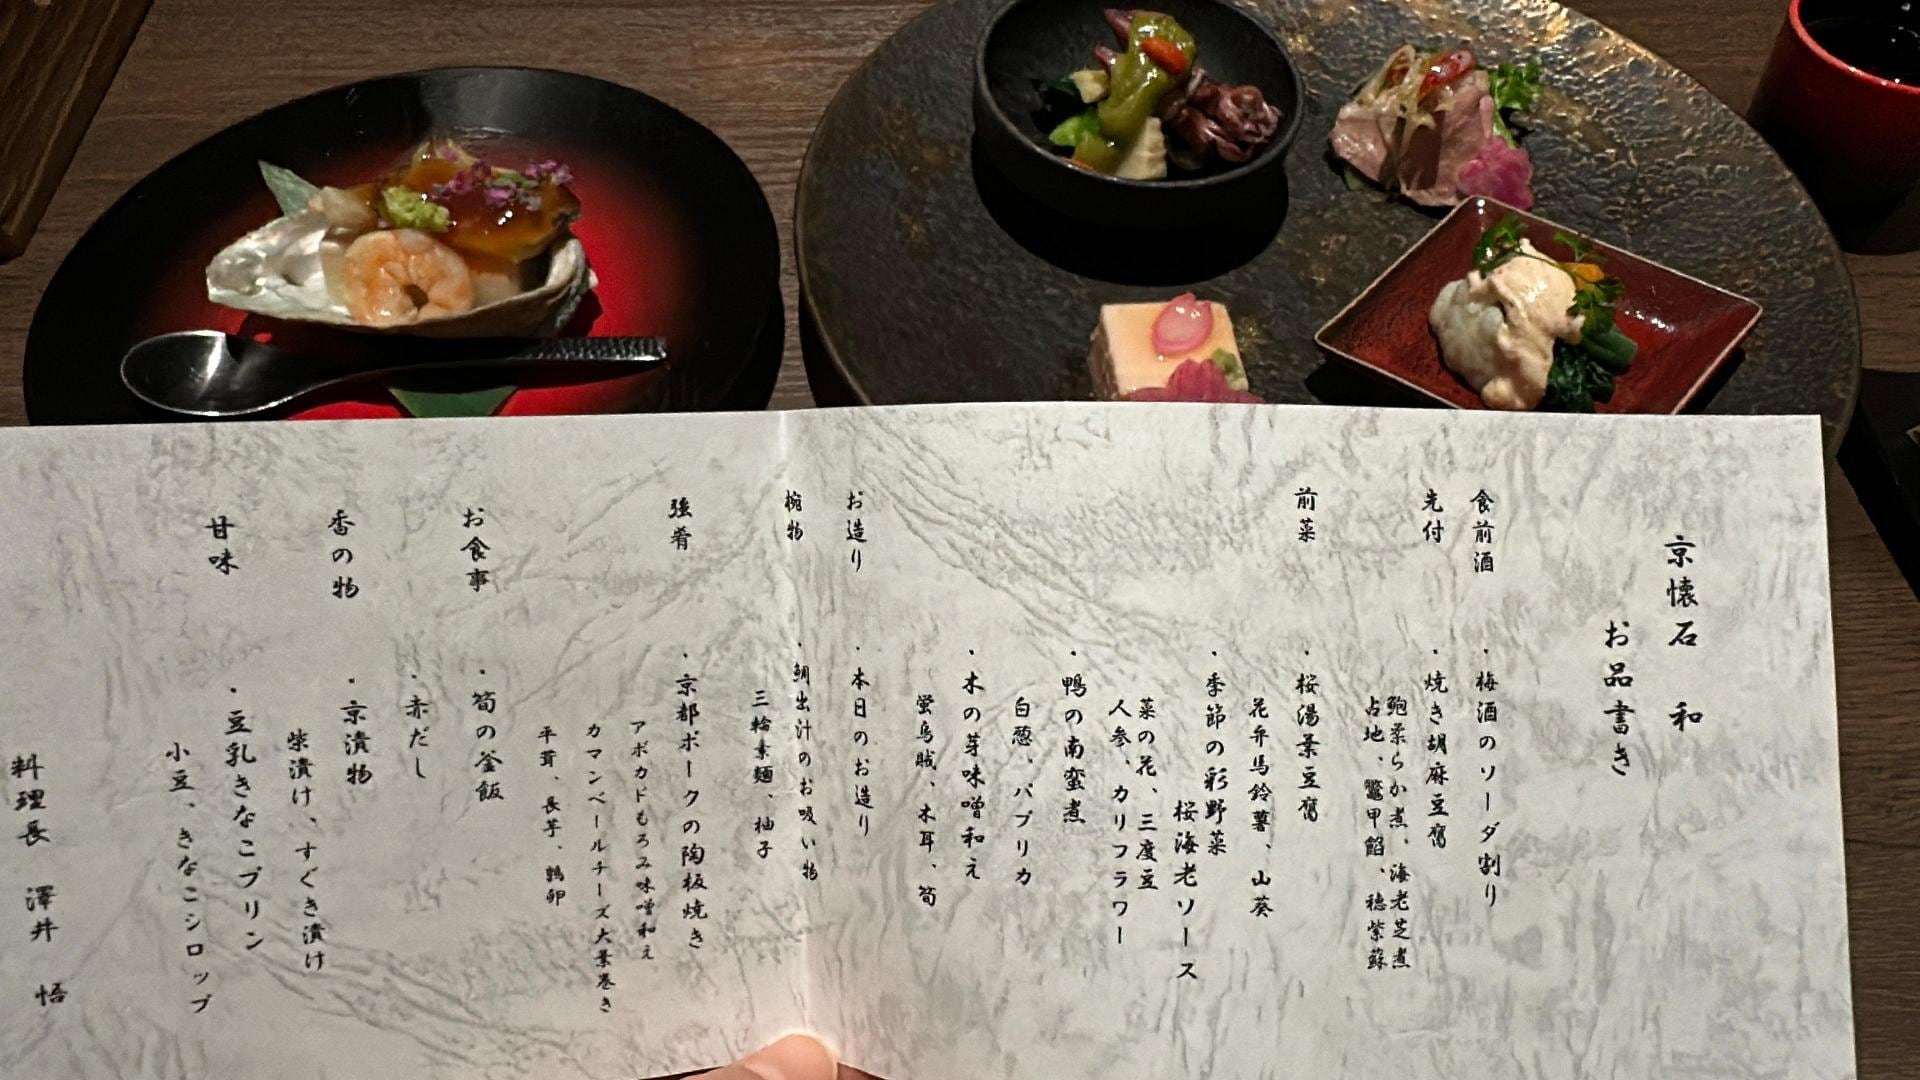 京懐石 和
お品書き
食前酒
・梅酒のソーダ割り
先付
・焼き胡麻豆腐
鮑柔らか煮、海老芝煮
占地、鼈甲餡、穂紫蘇
前菜
・桜湯葉豆腐
花弁馬鈴薯、山葵
・季節の彩野菜
桜海老ソース
菜の花、三度豆
人参、カリフラワー
・鴨の南蛮煮
白葱、パプリカ
・木の芽味噌和え
蛍烏賊、木耳、筍
お造り
・本日のお造り
椀物
・鯛出汁のお吸い物
三輪素麺、柚子
強肴
・京都ポークの陶板焼き
アボカドもろみ味噌和え
カマンベールチーズ大葉巻き
平茸、長芋、鶉卵
お食事
・筍の釜飯
・赤だし
香の物
・京漬物
柴漬け、すぐき漬け
甘味
・豆乳きなこプリン
小豆、きなこシロップ
料理長 澤井 悟